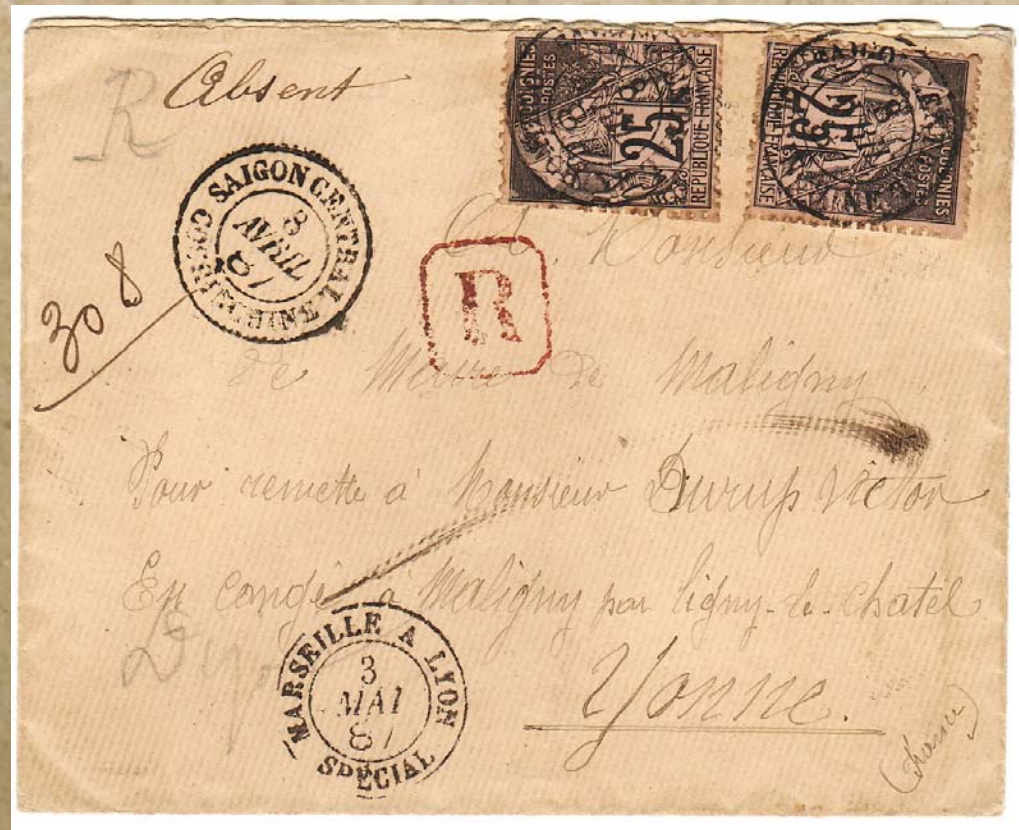 R
Absent
COLONIES
POSTES
25
REPUBLIQUE FRANÇAISE
COLONIES
POSTES
25
REPUBLIQUE FRANÇAISE
SAIGON CENTRAL
8
AVRIL
87
COCHINCHINE
308
R
Monsieur
Maire de Maligny
Pour remettre à Monsieur Durup Victor
En congé à Maligny par Ligny-le-Chatel
Yonne.
(France)
MARSEILLE A LYON
3
MAI
87
SPÉCIAL